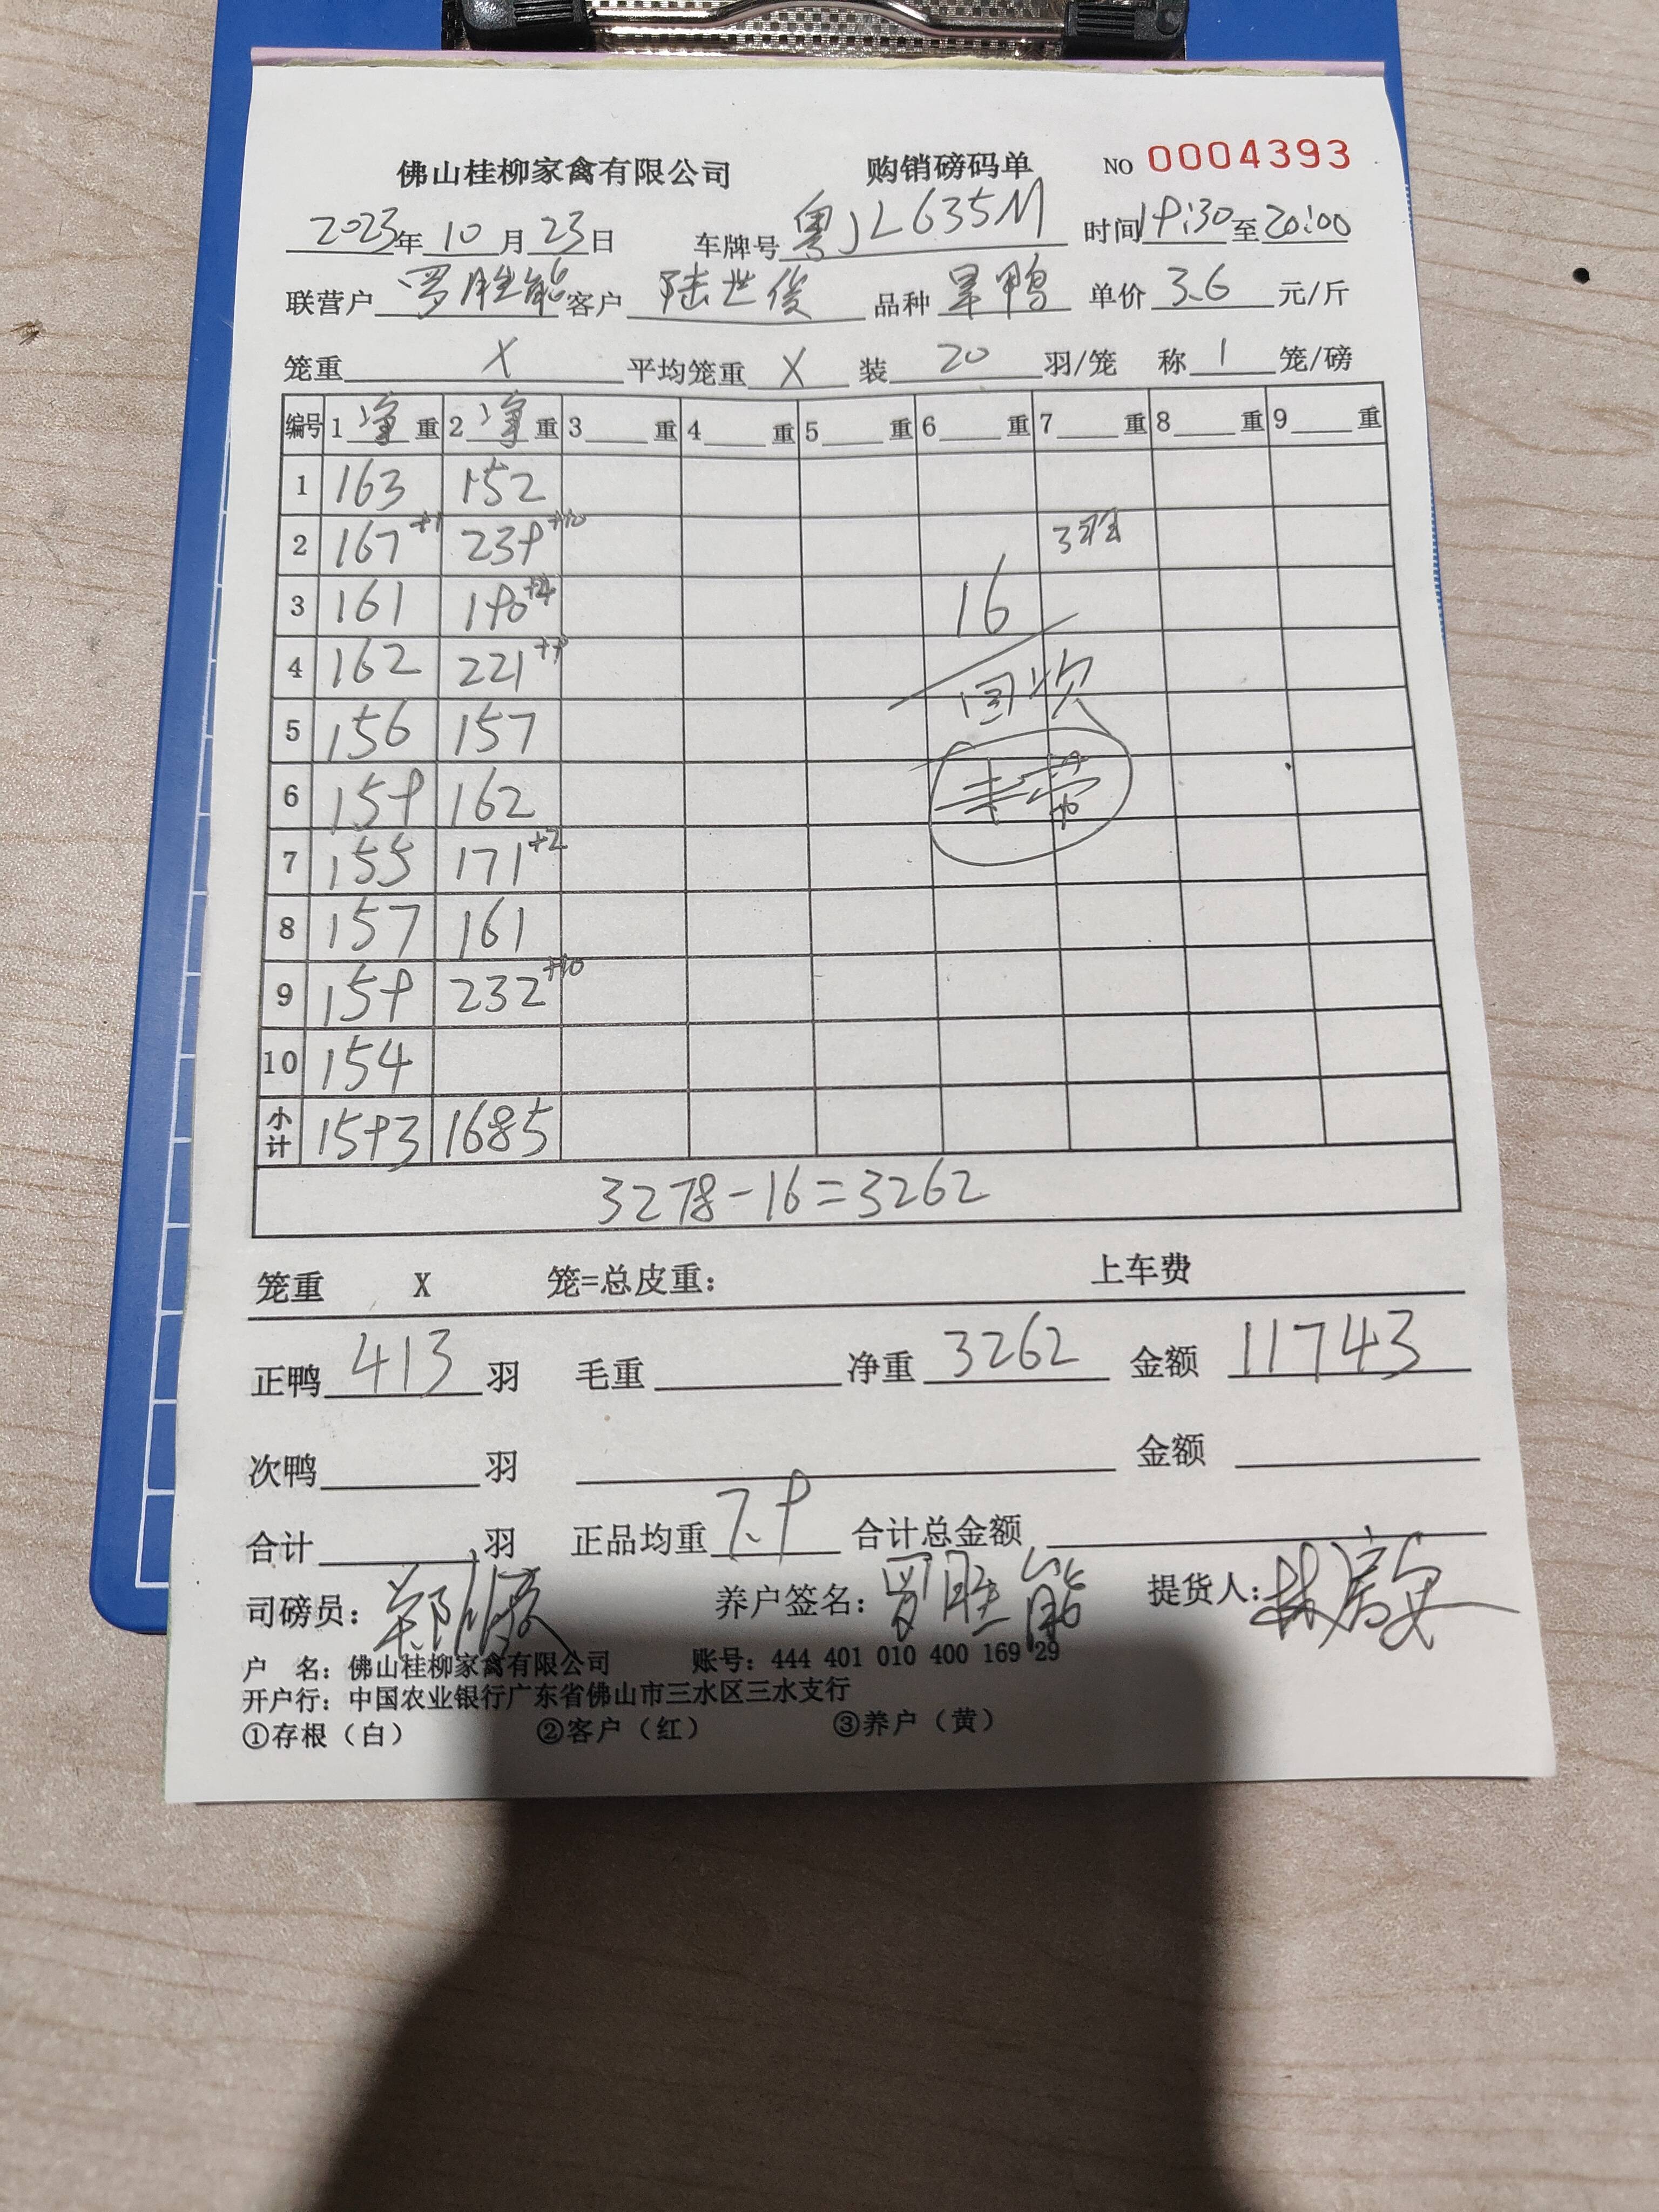 佛山桂柳家禽有限公司 购销磅码单 NO 0004393
2023年 10 月 23 日 车牌号 粤JL635M 时间 19:30 至 20:00
联营户 罗胜能 客户 陆世俊 品种 旱鸭 单价 3.6 元/斤
笼重 X 平均笼重 X 装 20 羽/笼 称 1 笼/磅
编号 1 净 重 2 净 重 3 重 4 重 5 重 6 重 7 重 8 重 9 重
1 163 152
2 167 +1 239 +10
3 161 190 +4
4 162 221 +9
5 156 157
6 159 162
7 155 171 +2
8 157 161
9 159 232 +10
10 154
16
回次
小计 1593 1685
3278-16=3262
笼重 X 笼=总皮重: 上车费
正鸭 413 羽 毛重 净重 3262 金额 11743
次鸭 羽 金额
合计 羽 正品均重 7.9 合计总金额
司磅员: 养户签名: 罗胜能 提货人:
户 名: 佛山桂柳家禽有限公司 账号: 444 401 010 400 169 29
开户行: 中国农业银行广东省佛山市三水区三水支行
①存根（白） ②客户（红） ③养户（黄）